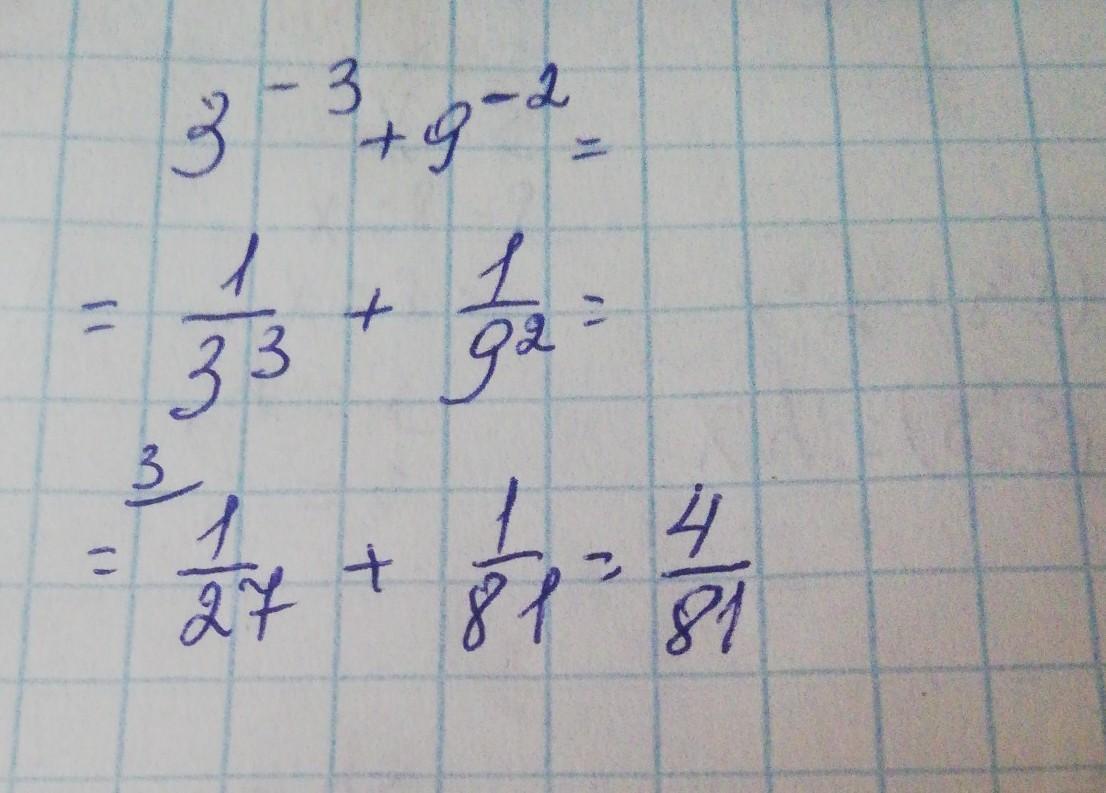 3⁻³ + 9⁻² =
= 1/3³ + 1/9² =
= ³⁄ 1/27 + 1/81 = 4/81